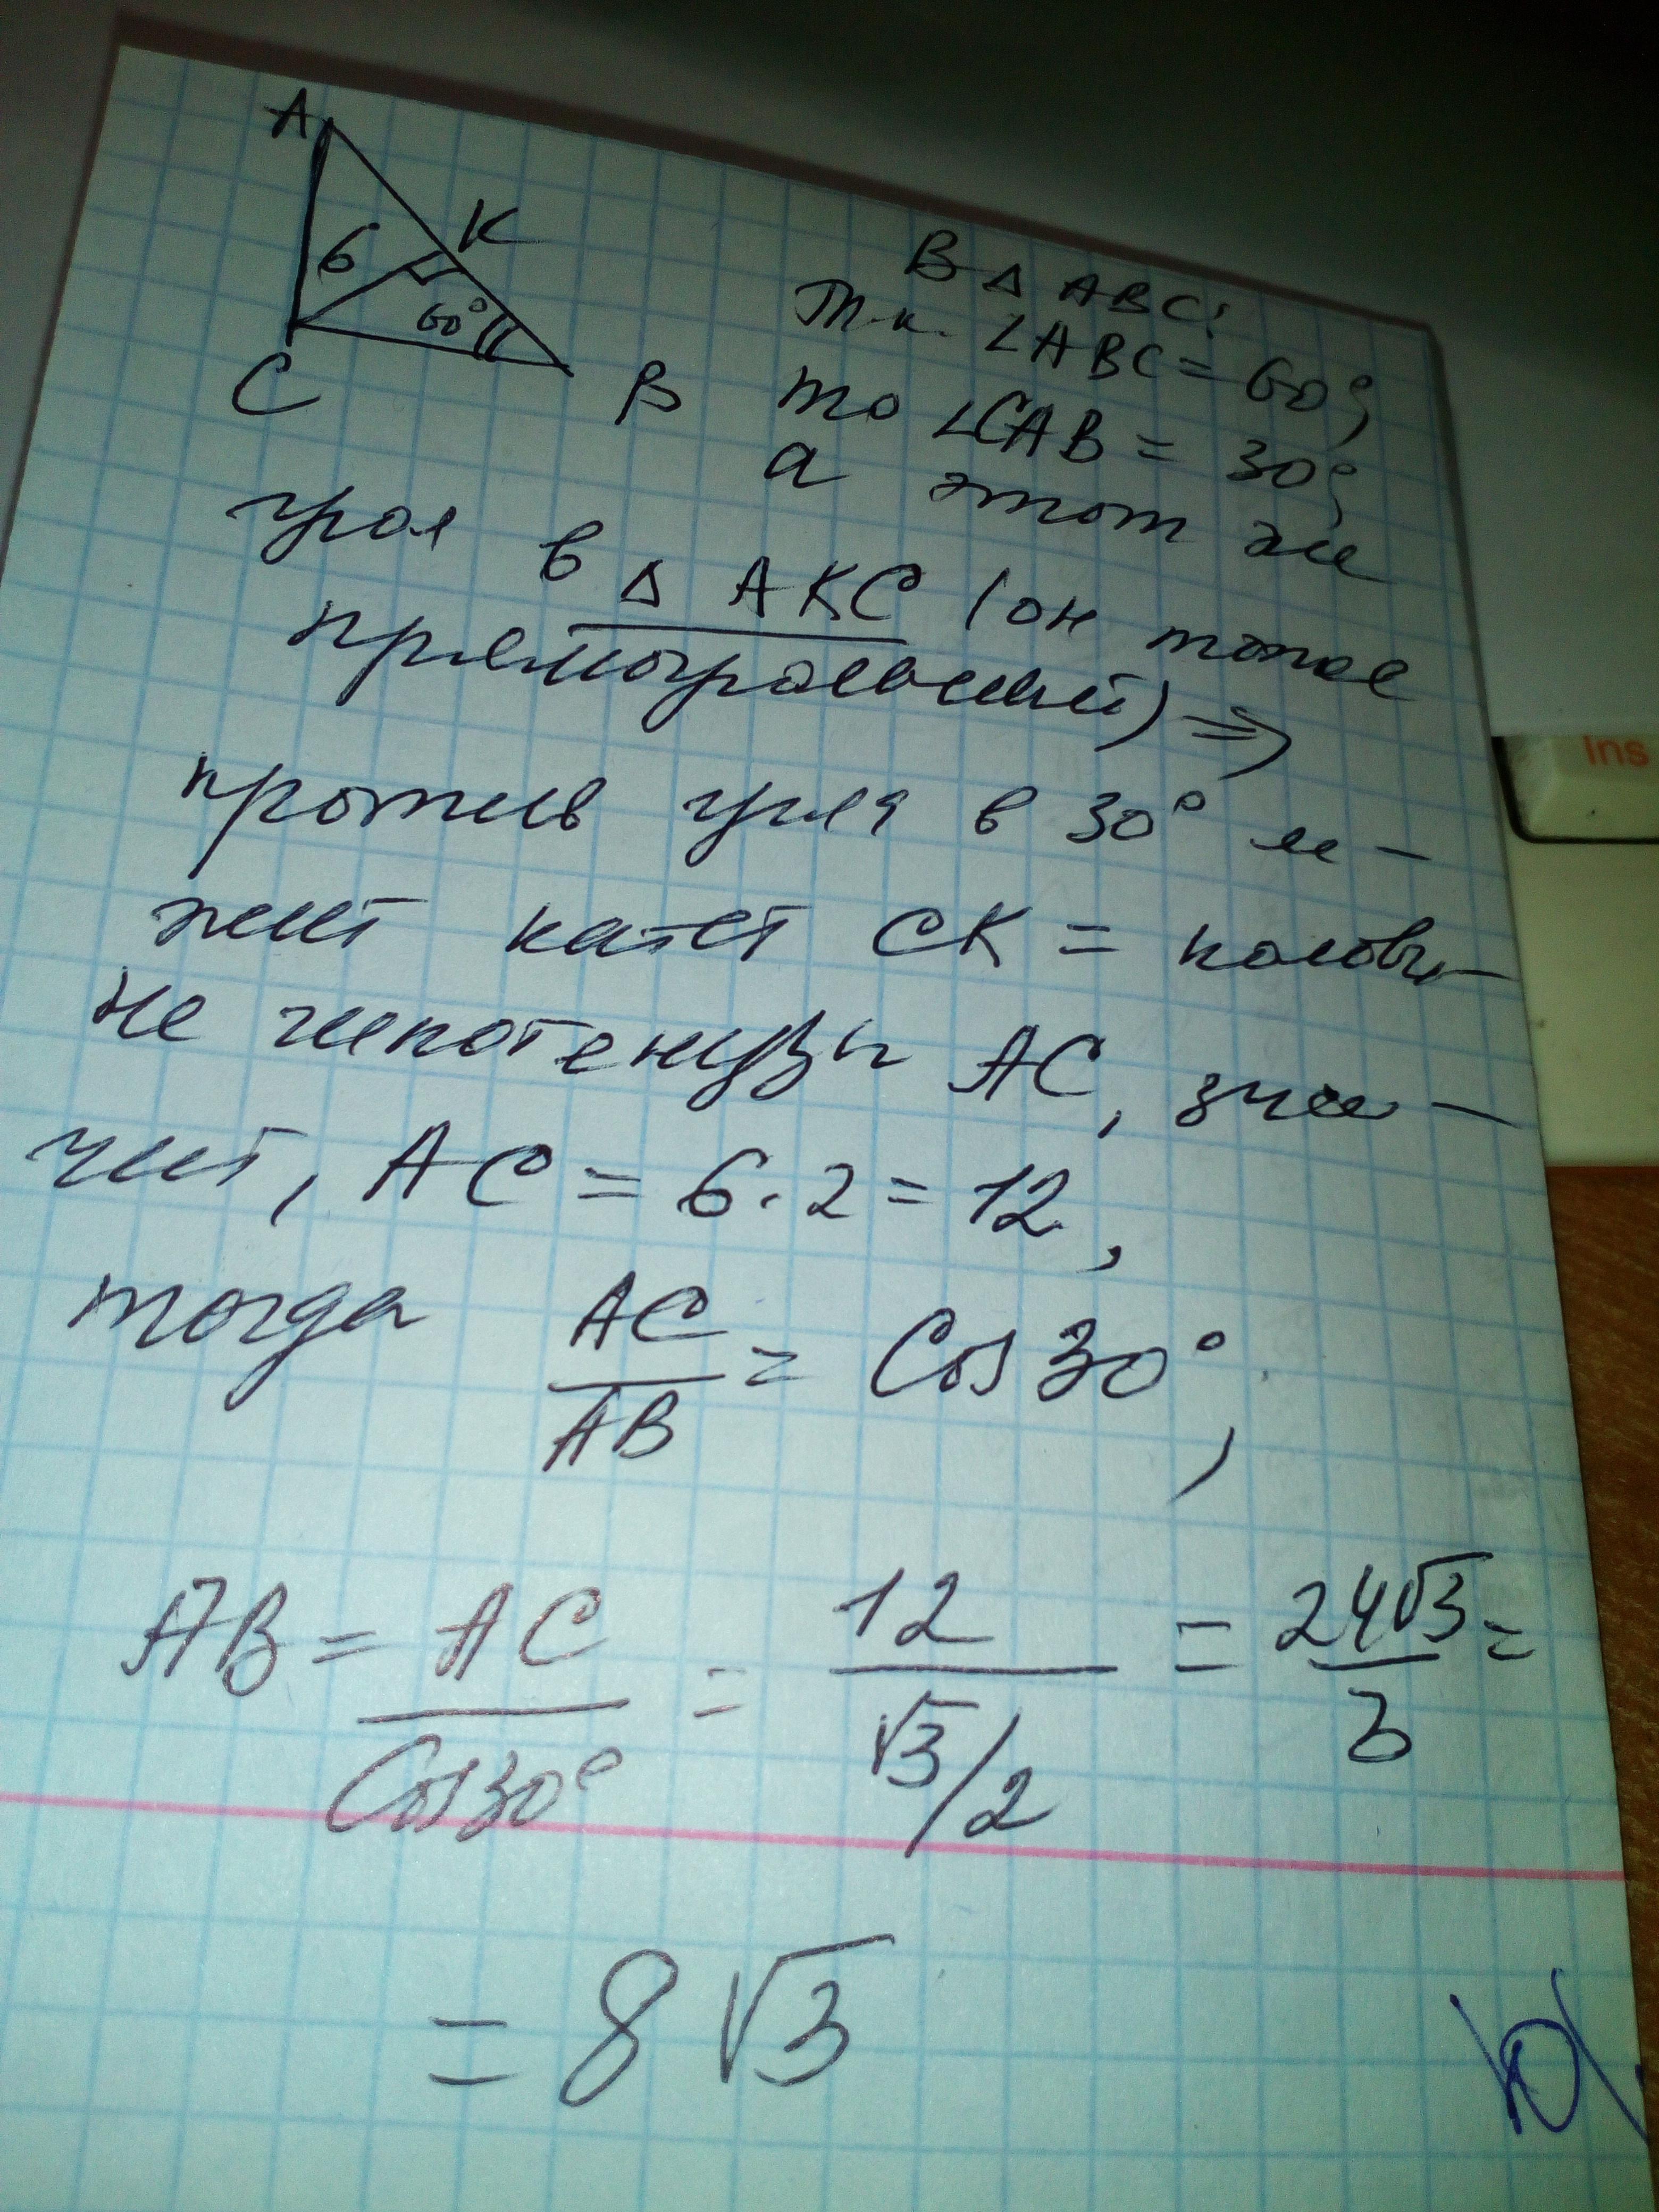 A
K
6
60°
C
B
В △ ABC:
Т.к. ∠ABC = 60°,
то ∠CAB = 30°,
а этот же
угол в △ AKC (он тоже
прямоугольный) ⇒
против угла в 30° ле-
жит катет CK = полови-
не гипотенузы AC, зна-
чит, AC = 6·2 = 12,
тогда AC/AB = Cos 30°,
AB = AC/Cos30° = 12/(√3/2) = 24√3/3 =
= 8√3
Ins